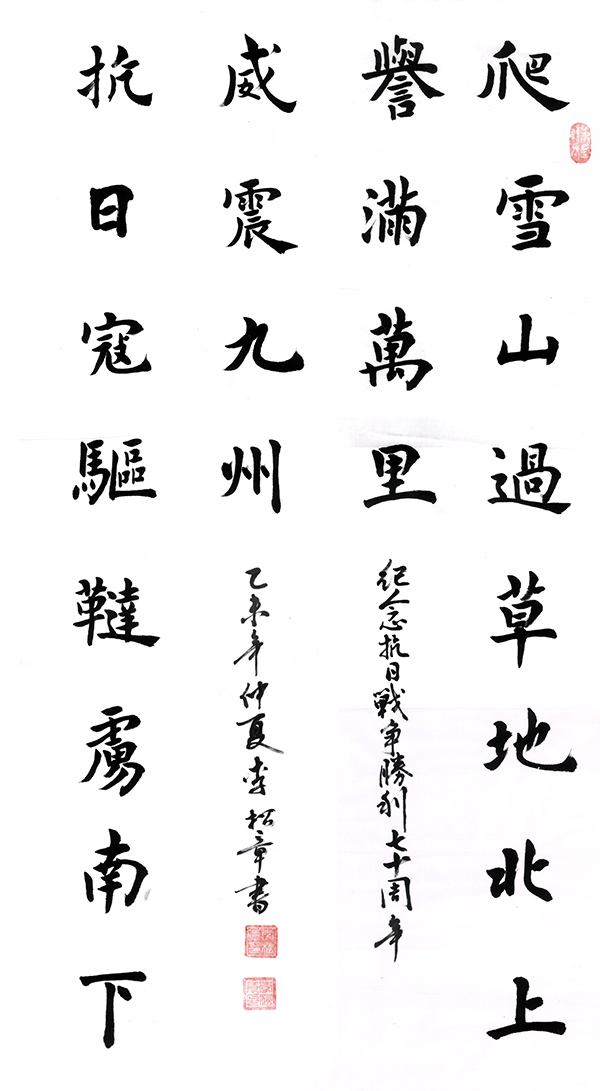 爬雪山過草地北上
譽滿萬里
紀念抗日戰争勝利七十周年
威震九州
乙未年仲夏李松章書
抗日寇驅韃虜南下